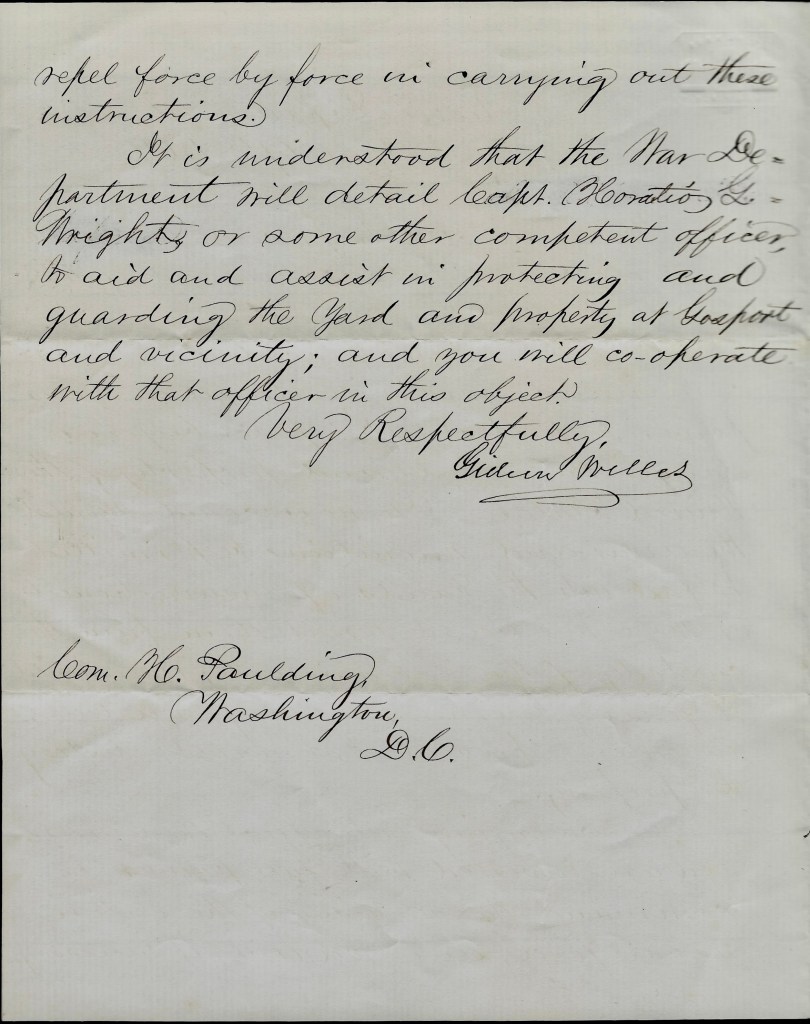 repel force by force in carrying out these
instructions.
It is understood that the War De=
partment will detail Capt. Horatio G.
Wright, or some other competent officer,
to aid and assist in protecting and
guarding the Yard and property at Gosport
and vicinity; and you will co-operate
with that officer in this object.
Very Respectfully,
Gideon Welles
Com. H. Paulding,
Washington,
D.C.